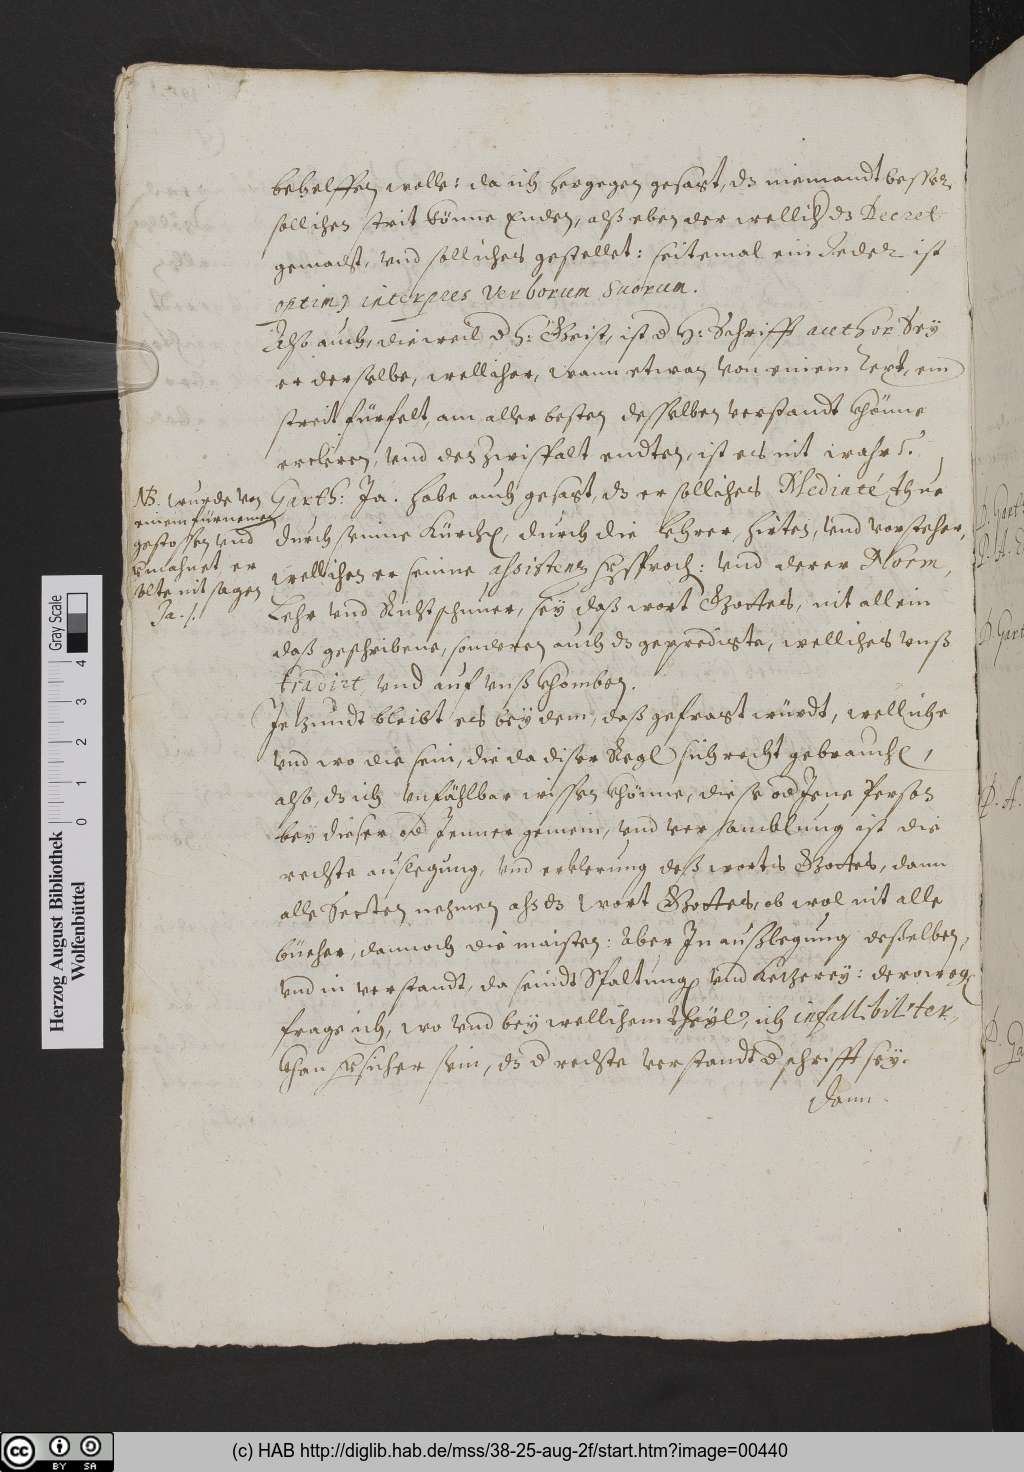 behelffen welle: da ich hergegen gesagt, dz niemandt besser
sollichen strit könne Enden, alß eben der wellich dz Decret
gemacht, und solliches gestellet: seitemal ein Jeder ist
optimq interpres verborum suorum.
Also auch, die weil d H: Geist, ist d H: Schrifft author Sey
er derselbe, wellicher, wann etwan von einem Text, ein
streit fürfelt, am aller besten desselben verstandt khönne
ercleren, und den Zwispalt endten, ist es nit wahr?
NB. wurde von
einem fürnemen
gestossen und
ermahnet er
solte nit sagen
Ja ./.
Garth: Ja. habe auch gesagt, dz er solliches Mediaté thue
durch seinne Kürch, durch die Lehrer, hirten, und vorsteher,
wellichen er seinne assistenz versproch: und derer Norm,
Lehr und Richtschnuer, sey daß wort Gottes, nit allein
daß geschribene, sonderen auch dz gepredigte, welliches unß
tradirt, und auf unß khomben.
Jetzundt bleibt es bey dem, daß gefragt würdt, welliche
und wo die sein, die da diser Regl sich recht gebrauch,
also, dz ich unfählbar wissen khönne, diese od Jene Person
bey dieser od Jenner gemein, und versamblung ist die
rechte auslegung, und erklerung deß worts Gottes, dann
alle Secten nehmen ahn dz wort Gottes, ob wol nit alle
büecher, dannoch die maisten: Aber In außlegung desselben,
und in verstandt, da seindt Spaltung und Ketzerey: deroweg
frage ich, wo und bey wellichem theyl, ich infallibiliter
khan versichert sein, dz d rechte verstandt d schrifft sey.
Dann
D. Gart
D. A.
D. Gart
D. A.
D. Ga
Herzog August Bibliothek
Wolfenbüttel
Gray Scale
0 1 2 3 4
(c) HAB http://diglib.hab.de/mss/38-25-aug-2f/start.htm?image=00440
cc BY SA